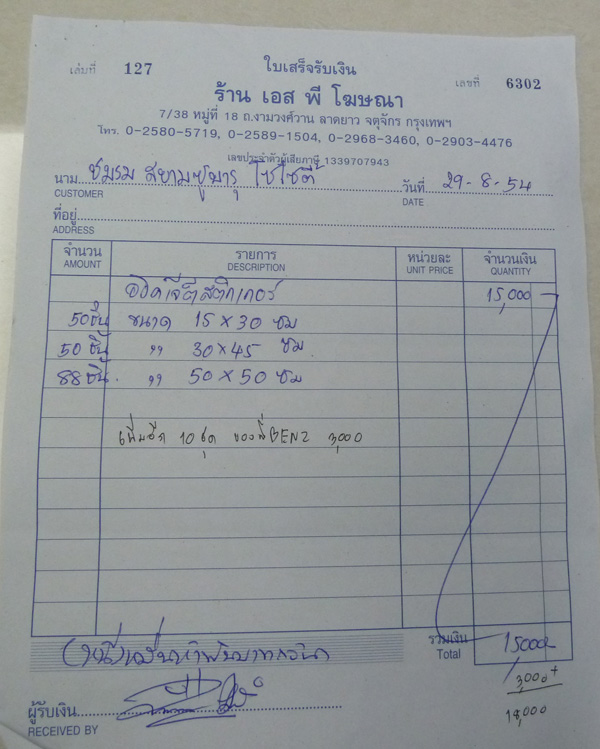 เล่มที่ 127 ใบเสร็จรับเงิน เลขที่ 6302
ร้าน เอส พี โฆษณา
7/38 หมู่ที่ 18 ถ.งามวงศ์วาน ลาดยาว จตุจักร กรุงเทพฯ
โทร. 0-2580-5719, 0-2589-1504, 0-2968-3460, 0-2903-4476
เลขประจำตัวผู้เสียภาษี 1339707943
นาม ชมรม สยามซูบารุ โซไซตี้ วันที่ 29-8-54
CUSTOMER DATE
ที่อยู่
ADDRESS
จำนวน รายการ หน่วยละ จำนวนเงิน
AMOUNT DESCRIPTION UNIT PRICE QUANTITY
อิงค์เจ็ตสติกเกอร์ 15,000
50ชิ้น ขนาด 15 x 30 ซม
50 ชิ้น ,, 30 x 45 ซม
88ชิ้น ,, 50 x 50 ซม
เพิ่มอีก 10 ชุด ของพี่BENZ 3,000
(หนึ่งหมื่นห้าพันบาทถ้วน) รวมเงิน 15000-
Total
3,000 +
18,000
ผู้รับเงิน
RECEIVED BY